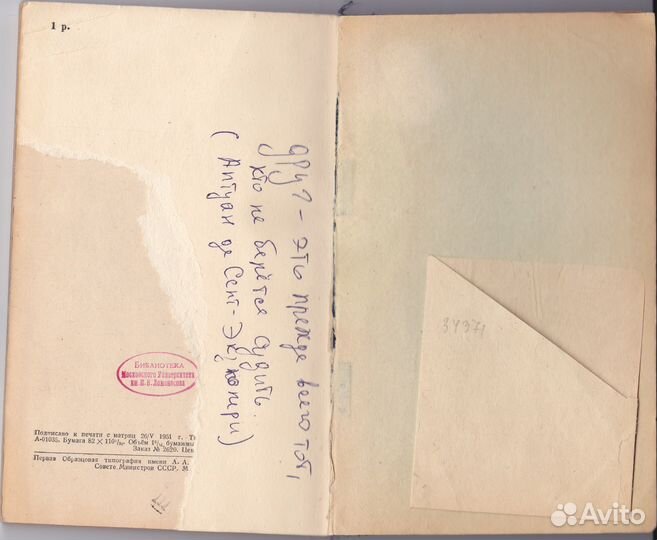 1 р.
друг - это прежде всего тот,
кто не берётся судить.
(Антуан де Сент-Экзюпери)
БИБЛИОТЕКА
Московского Университета
им. М. В. Ломоносова
Подписано к печати с матриц 26/V 1951 г.
А-01035. Бумага 82 × 110¹/₃₂. Объём бумажны
Заказ № 2620. Цен
Первая Образцовая типография имени А. А.
Совете Министров СССР. М
34371
Avito